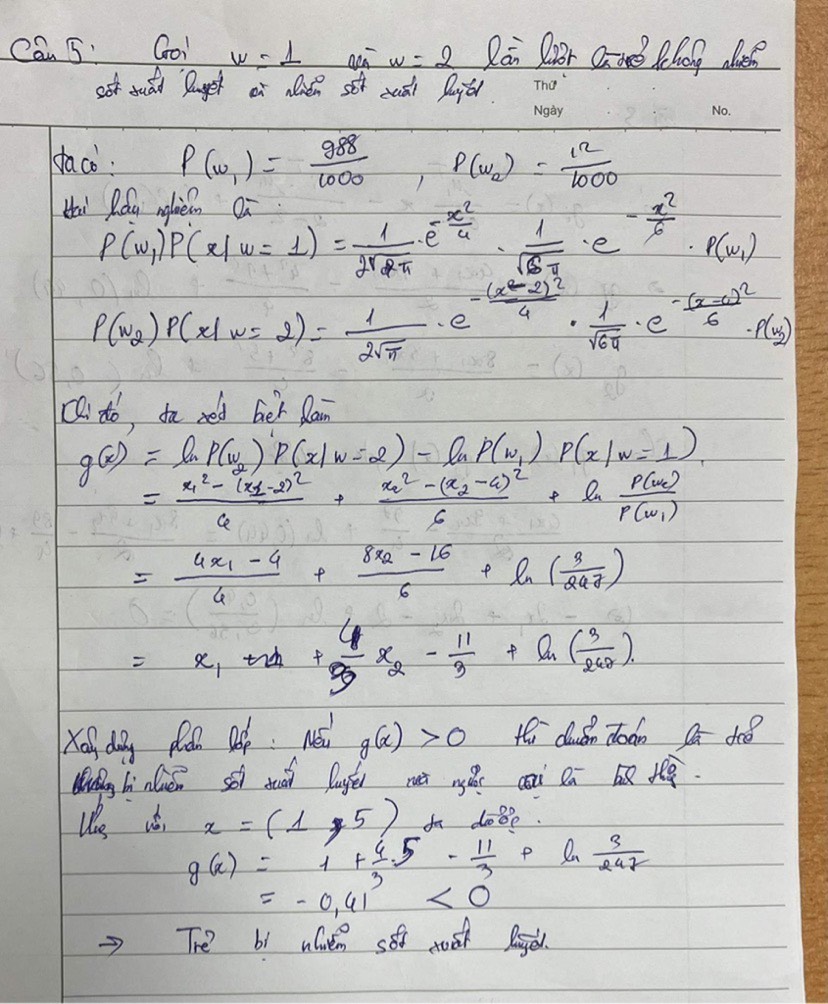 Câu 5: Gọi w = 1 và w = 2 lần lượt là trẻ không nhiễm
sốt xuất huyết và nhiễm sốt xuất huyết.
Thứ
Ngày No.
Ta có: P(w₁) = 988/1000 , P(w₂) = 12/1000
Hai hậu nghiệm là
P(w₁)P(x|w = 1) = 1/(2√2π) · e^(-x²/4) · 1/√6π · e^(-x²/6) · P(w₁)
P(w₂)P(x|w = 2) = 1/(2√π) · e^(-(x-2)²/4) · 1/√6π · e^(-(x-4)²/6) · P(w₂)
Khi đó, ta xét biệt hàm
g(x) = ln P(w₂) P(x|w = 2) - ln P(w₁) P(x|w = 1).
= (x₁² - (x₁-2)²)/4 + (x₂² - (x₂-4)²)/6 + ln P(w₂)/P(w₁)
= (4x₁ - 4)/4 + (8x₂ - 16)/6 + ln (3/247)
= x₁ + 4/3 x₂ - 11/3 + ln (3/247).
Xây dựng phân lớp: Nếu g(x) > 0 thì chuẩn đoán là trẻ
bị nhiễm sốt xuất huyết ngược lại là
Ứng với x = (1, 5) ta được.
g(x) = 1 + 4/3 . 5 - 11/3 + ln 3/247
= - 0,41 < 0
→ Trẻ bị nhiễm sốt xuất huyết.